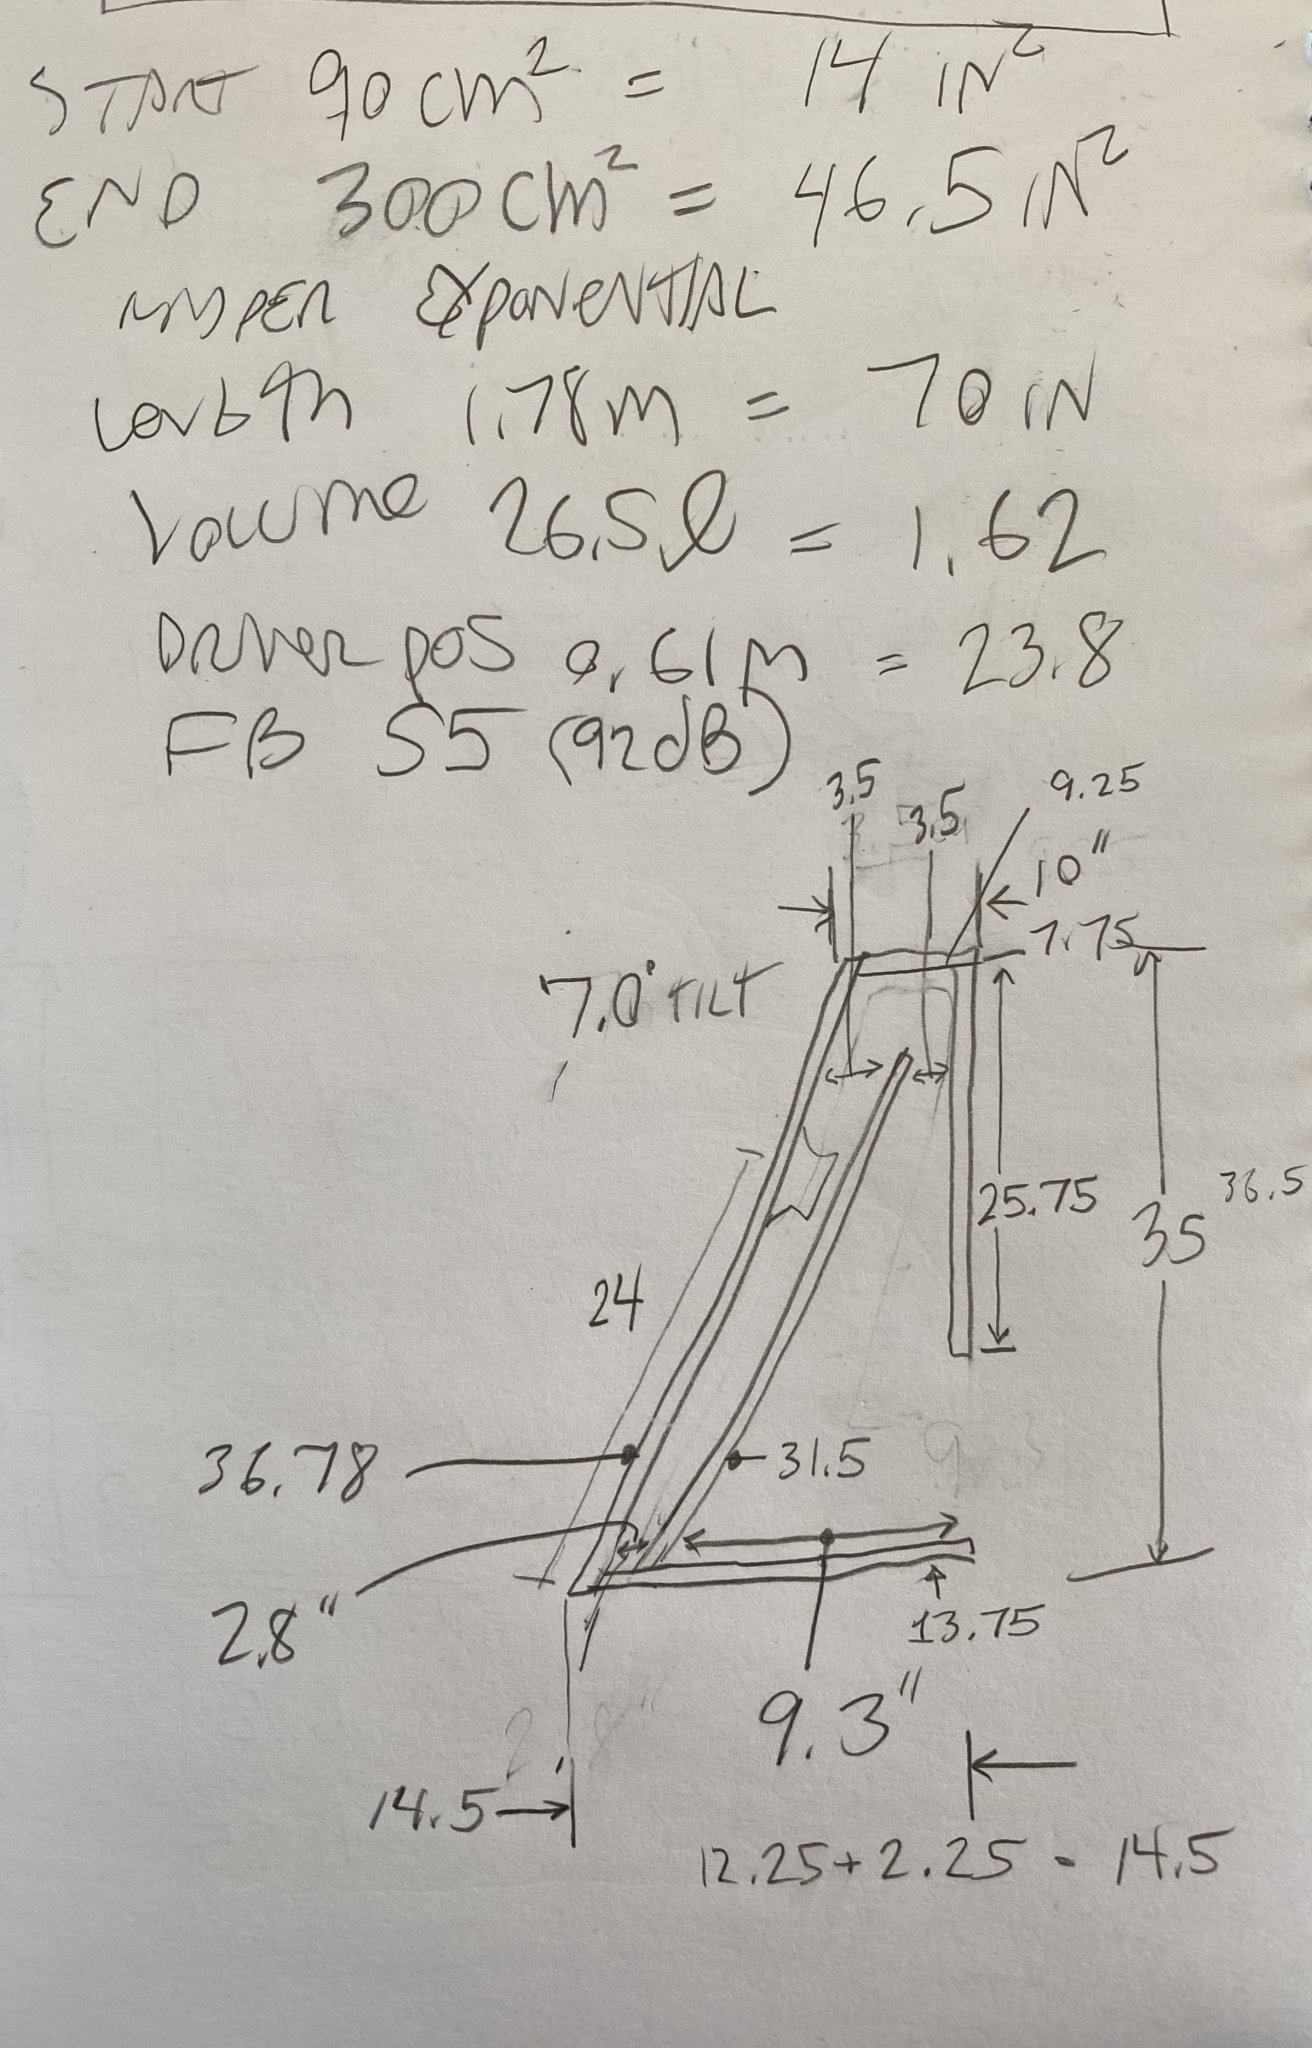 START 90 cm² = 14 IN²
END 300 cm² = 46.5 IN²
HYPER EXPONENTIAL
LENGTH 1.78 M = 70 IN
VOLUME 26.5 l = 1.62
DRIVER POS 0.61 M = 23.8
FB S5 (92 dB)
3.5
3.5
9.25
10"
7.75
7.0° TILT
25.75
35
36.5
24
36.78
31.5
2.8"
13.75
9.3"
14.5
12.25 + 2.25 = 14.5